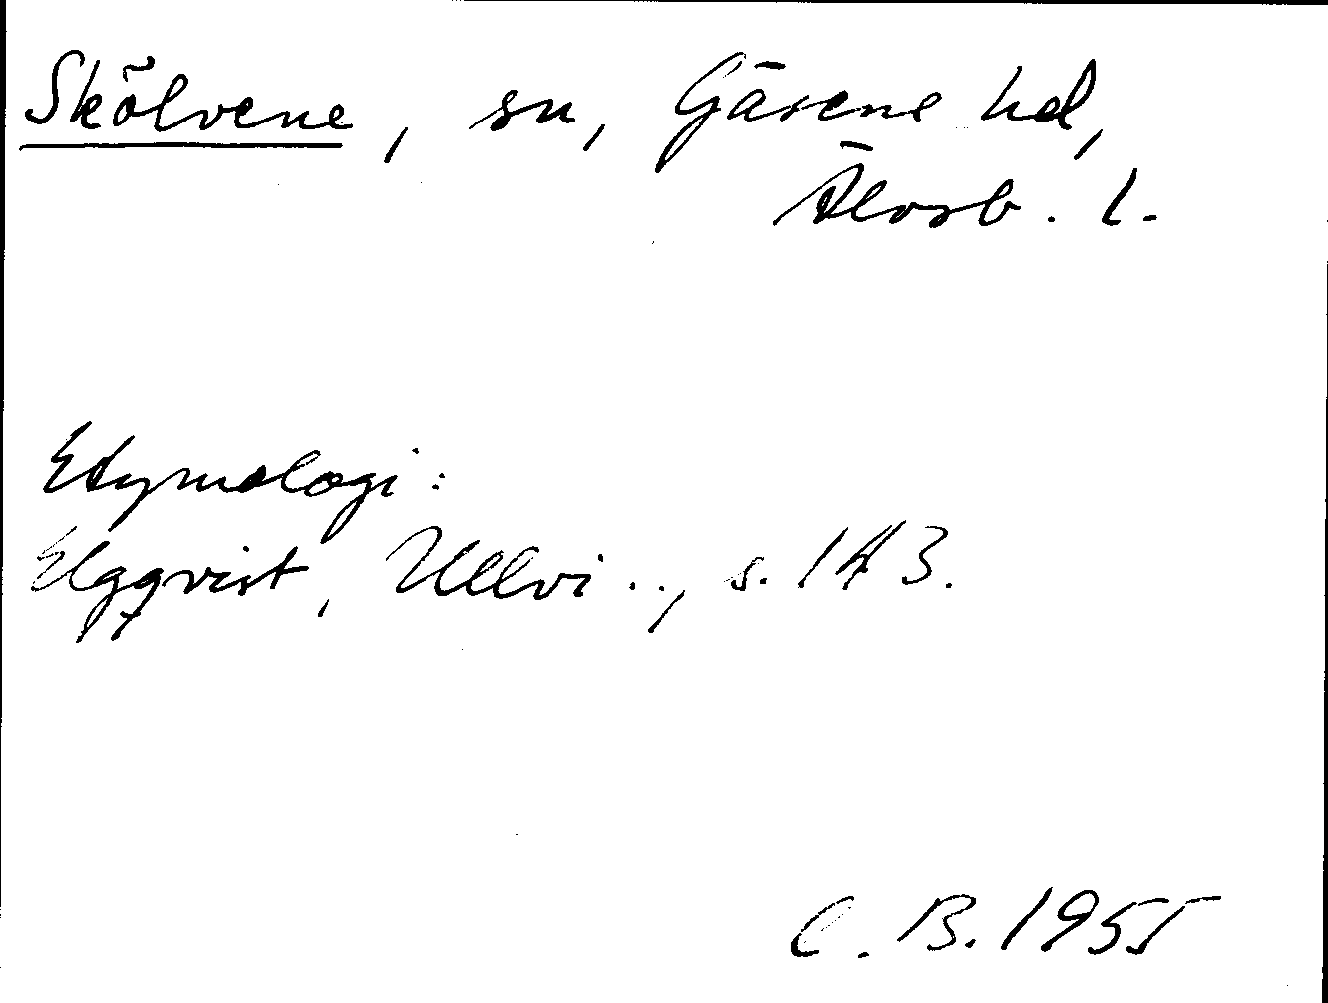 Skölvene, sn, Gäsene hd,
Älvsb. l.
Etymologi:
Elgqvist, Ullvi.., s. 143.
C. B. 1955